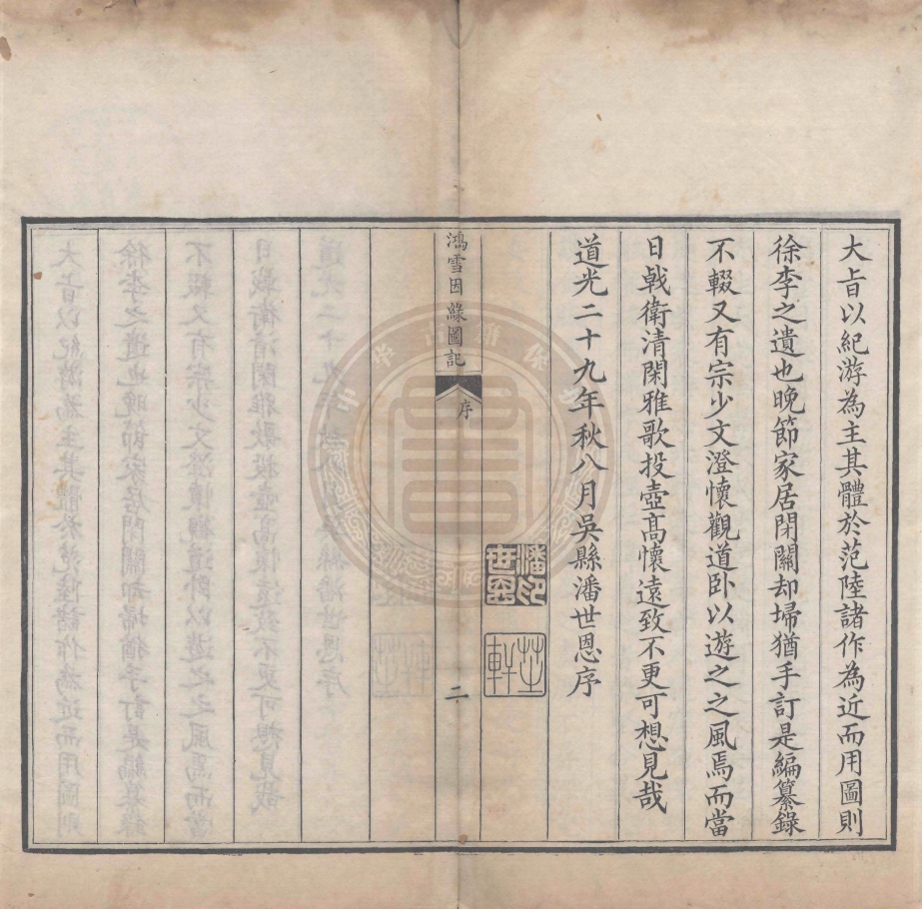 大旨以紀游為主其體於范陸諸作為近而用圖則
徐李之遺也晚節家居閉關却埽猶手訂是編纂錄
不輟又有宗少文澄懷觀道卧以遊之之風焉而當
日戟衛清閑雅歌投壺高懷遠致不更可想見哉
道光二十九年秋八月吳縣潘世恩序
潘印世恩
芝軒
鴻雪因緣圖記
序
二